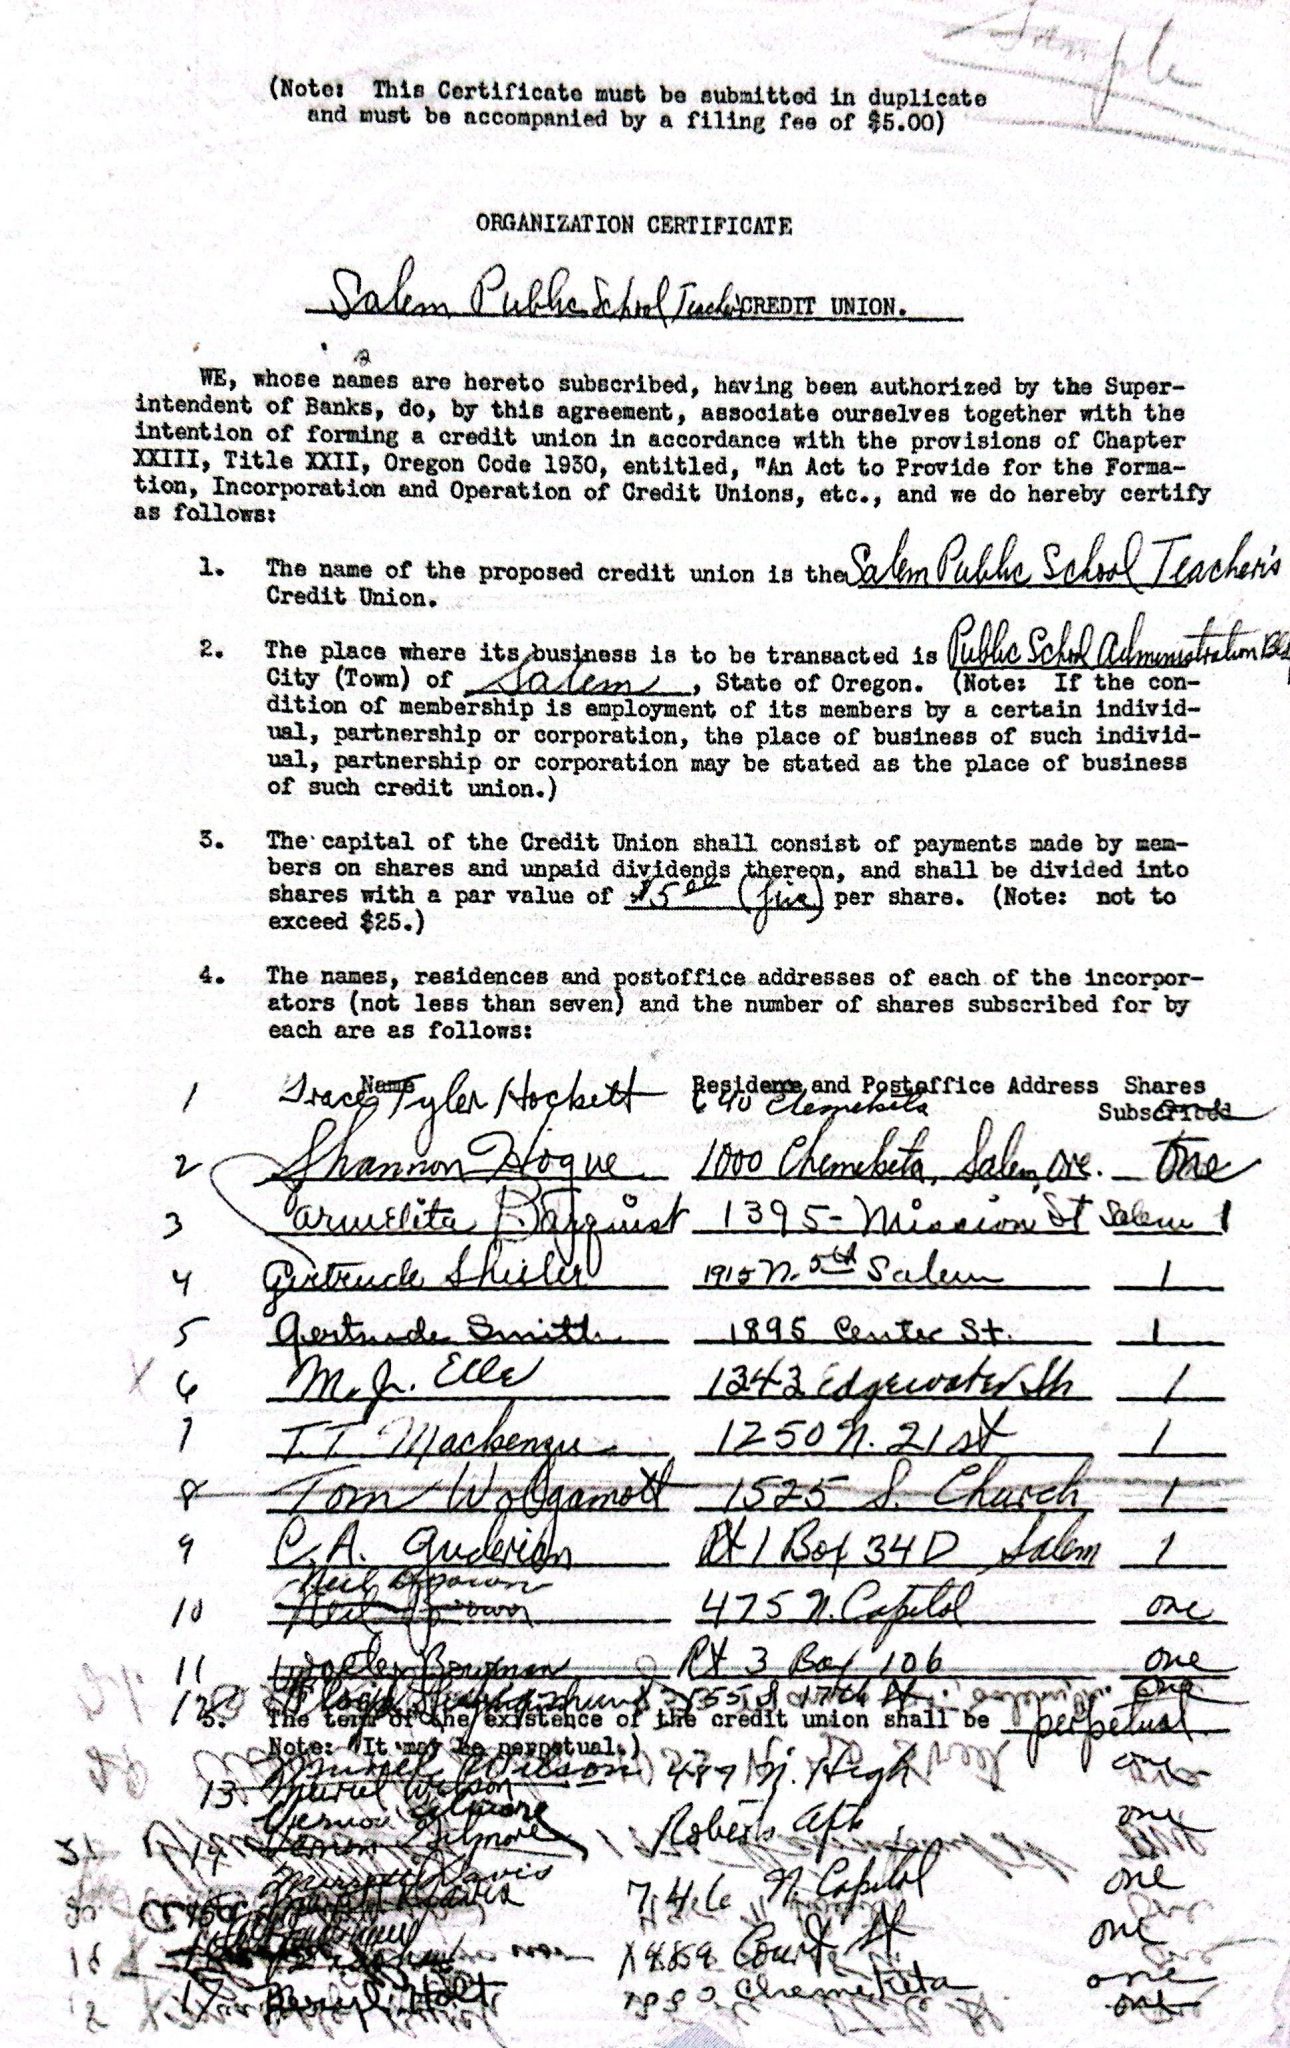 Sample
(Note: This Certificate must be submitted in duplicate
and must be accompanied by a filing fee of $5.00)
ORGANIZATION CERTIFICATE
Salem Public School Teacher's CREDIT UNION.
WE, whose names are hereto subscribed, having been authorized by the Super-
intendent of Banks, do, by this agreement, associate ourselves together with the
intention of forming a credit union in accordance with the provisions of Chapter
XXIII, Title XXII, Oregon Code 1930, entitled, "An Act to Provide for the Forma-
tion, Incorporation and Operation of Credit Unions, etc., and we do hereby certify
as follows:
1. The name of the proposed credit union is the Salem Public School Teacher's
Credit Union.
2. The place where its business is to be transacted is Public School Administration Bldg
City (Town) of Salem, State of Oregon. (Note: If the con-
dition of membership is employment of its members by a certain individ-
ual, partnership or corporation, the place of business of such individ-
ual, partnership or corporation may be stated as the place of business
of such credit union.)
3. The capital of the Credit Union shall consist of payments made by mem-
bers on shares and unpaid dividends thereon, and shall be divided into
shares with a par value of $5.00 (five) per share. (Note: not to
exceed $25.)
4. The names, residences and postoffice addresses of each of the incorpor-
ators (not less than seven) and the number of shares subscribed for by
each are as follows:
Name Residence and Postoffice Address Shares
Subscribed
1 Grace Tyler Hockett 640 Chemeketa one
2 Shannon Hogue 1000 Chemeketa, Salem, Ore. One
3 Carmelita Barquist 1395 - Mission St Salem 1
4 Gertrude Shisler 1915 N. 5th Salem 1
5 Gertrude Smith 1895 Center St. 1
6 M. J. Elle 1343 Edgewater St 1
7 T. T. Mackenzie 1250 N. 21st 1
8 Tom Wolgamott 1525 S. Church 1
9 C. A. Guderian Rt 1 Box 34D Salem 1
Neil Brown
10 Neil Brown 475 N. Capitol one
11 Bowman Rt 3 Box 106 one
12 Floyd 55 S 17th St. one
5. The term of the existence of the credit union shall be perpetual
Note: "It may be perpetual.)
Muriel Wilson 487 N. High one
13 Muriel Wilson
Vernon Gilmore Roberts Apts. one
14 Vernon Gilmore
Davis 746 N. Capitol one
15 Davis
16 Court St one
17 Holt Chemeketa one
one